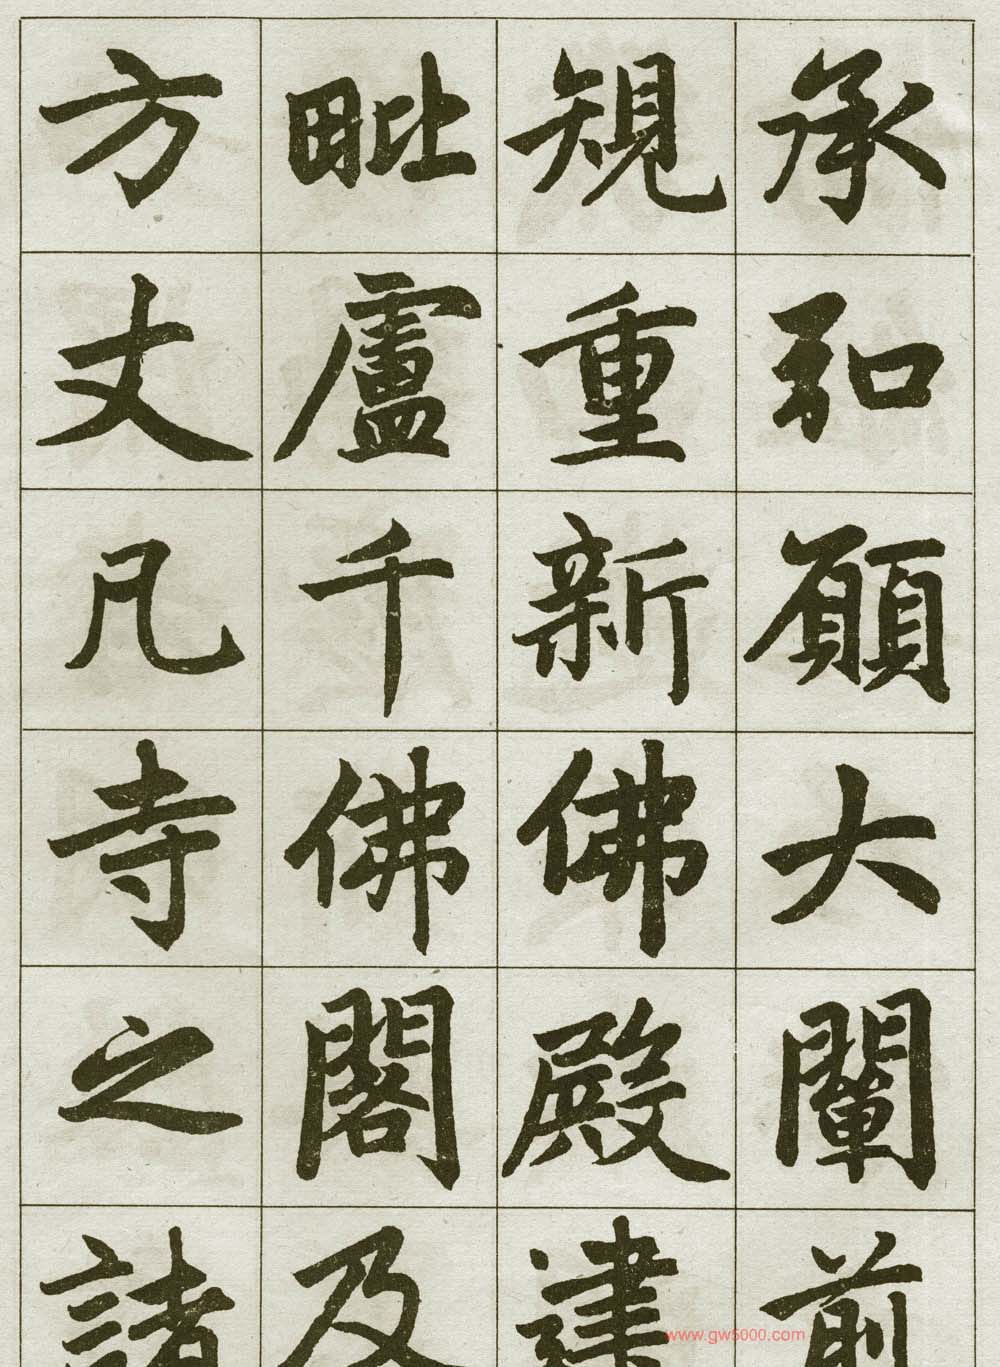 承弘願大闡前
規重新佛殿建
毗盧千佛閣及
方丈凡寺之諸
www.gw5000.com